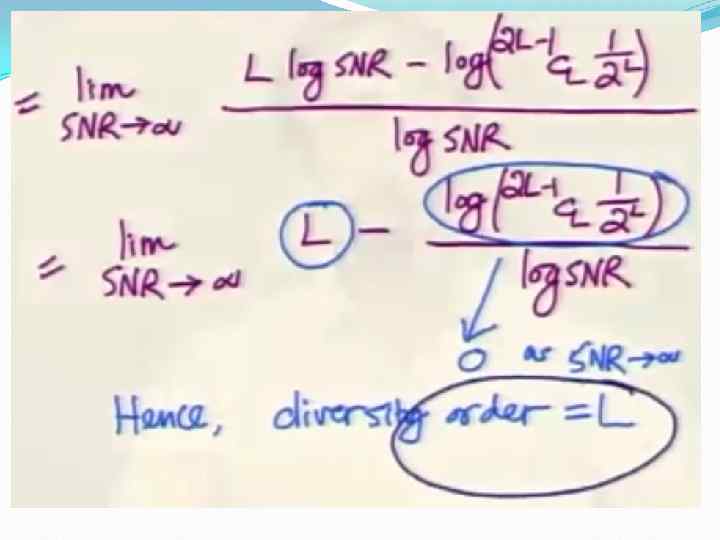 = lim SNR→∞ (L log SNR − log(²ᴸ⁻¹C_L 1/2ᴸ)) / log SNR
= lim SNR→∞ L − log(²ᴸ⁻¹C_L 1/2ᴸ) / log SNR
0 as SNR→∞
Hence, diversity order = L